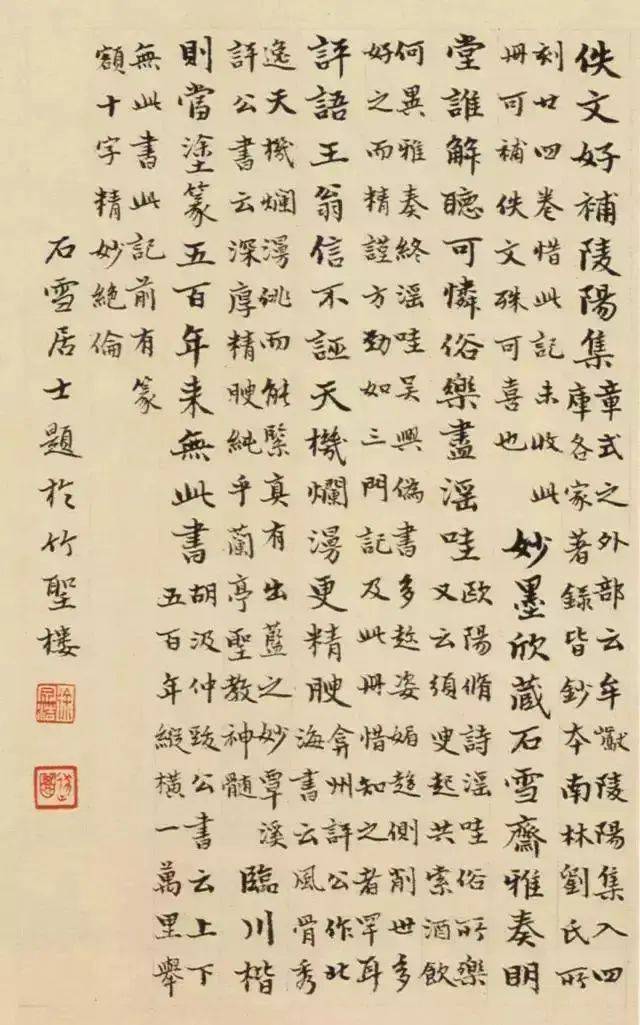 佚文好補陵陽集
章式之外部云牟巘陵陽集入四
庫各家著錄皆鈔本南林劉氏所
刻廿四卷惜此記未收此
冊可補佚文殊可喜也
妙墨欣藏石雪齋雅奏明
堂誰解聽可憐俗樂盡淫哇
歐陽脩詩淫哇俗所樂
又云須臾起共索酒飲
何異雅奏終淫哇吳興偽書多趁姿媚趨側削世多
好之而精謹方勁如三門記及此冊惜知之者罕耳
評語王翁信不誣天機爛漫更精腴
弇州評公作北
海書云風骨秀
逸天機爛漫佻而能緊真有出藍之妙覃溪
評公書云深厚精腴純乎蘭亭聖教神髓
臨川楷
則當塗篆五百年來無此書
胡汲仲跋公書云上下
五百年縱橫一萬里舉
無此書此記前有篆
額十字精妙絕倫
石雪居士題於竹聖樓